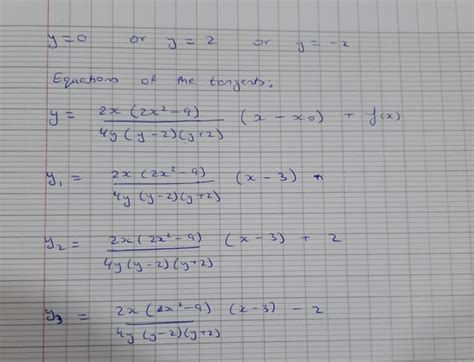 y = 0 or y = 2 or y = -2
Equations of the tangents;
y = 2x (2x² - 9) / 4y (y - 2)(y + 2) (x - x0) + f(x)
y₁ = 2x (2x² - 9) / 4y (y - 2)(y + 2) (x - 3)
y₂ = 2x (2x² - 9) / 4y (y - 2)(y + 2) (x - 3) + 2
y₃ = 2x (2x² - 9) / 4y (y - 2)(y + 2) (x - 3) - 2